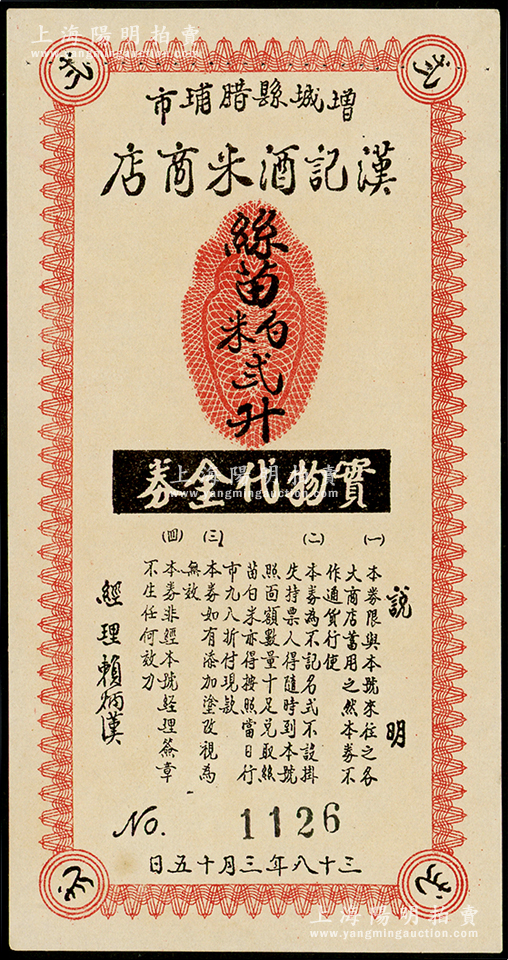 上海陽明拍賣
www.yangmingauction.com
增城縣腊埔市
漢記酒米商店
絲苗白米弍升
實物代金券
上海陽明拍賣
www.yangmingauction.com
說明
(一)
本券限與本號來往之各
大商店蓄用之然本券不
作通貨行使
(二)
本券為不記名式不設掛
失持票人得隨時到本號
照面額數量十足兌取絲
苗白米亦得按照當日行
市九八折付現款
(三)
本券如有添加塗改視為
無效
(四)
本券非經本號經理簽章
不生任何效力
經理賴炳漢
No. 1126
三十八年三月十五日
上海陽明拍賣
www.yangmingauction.com